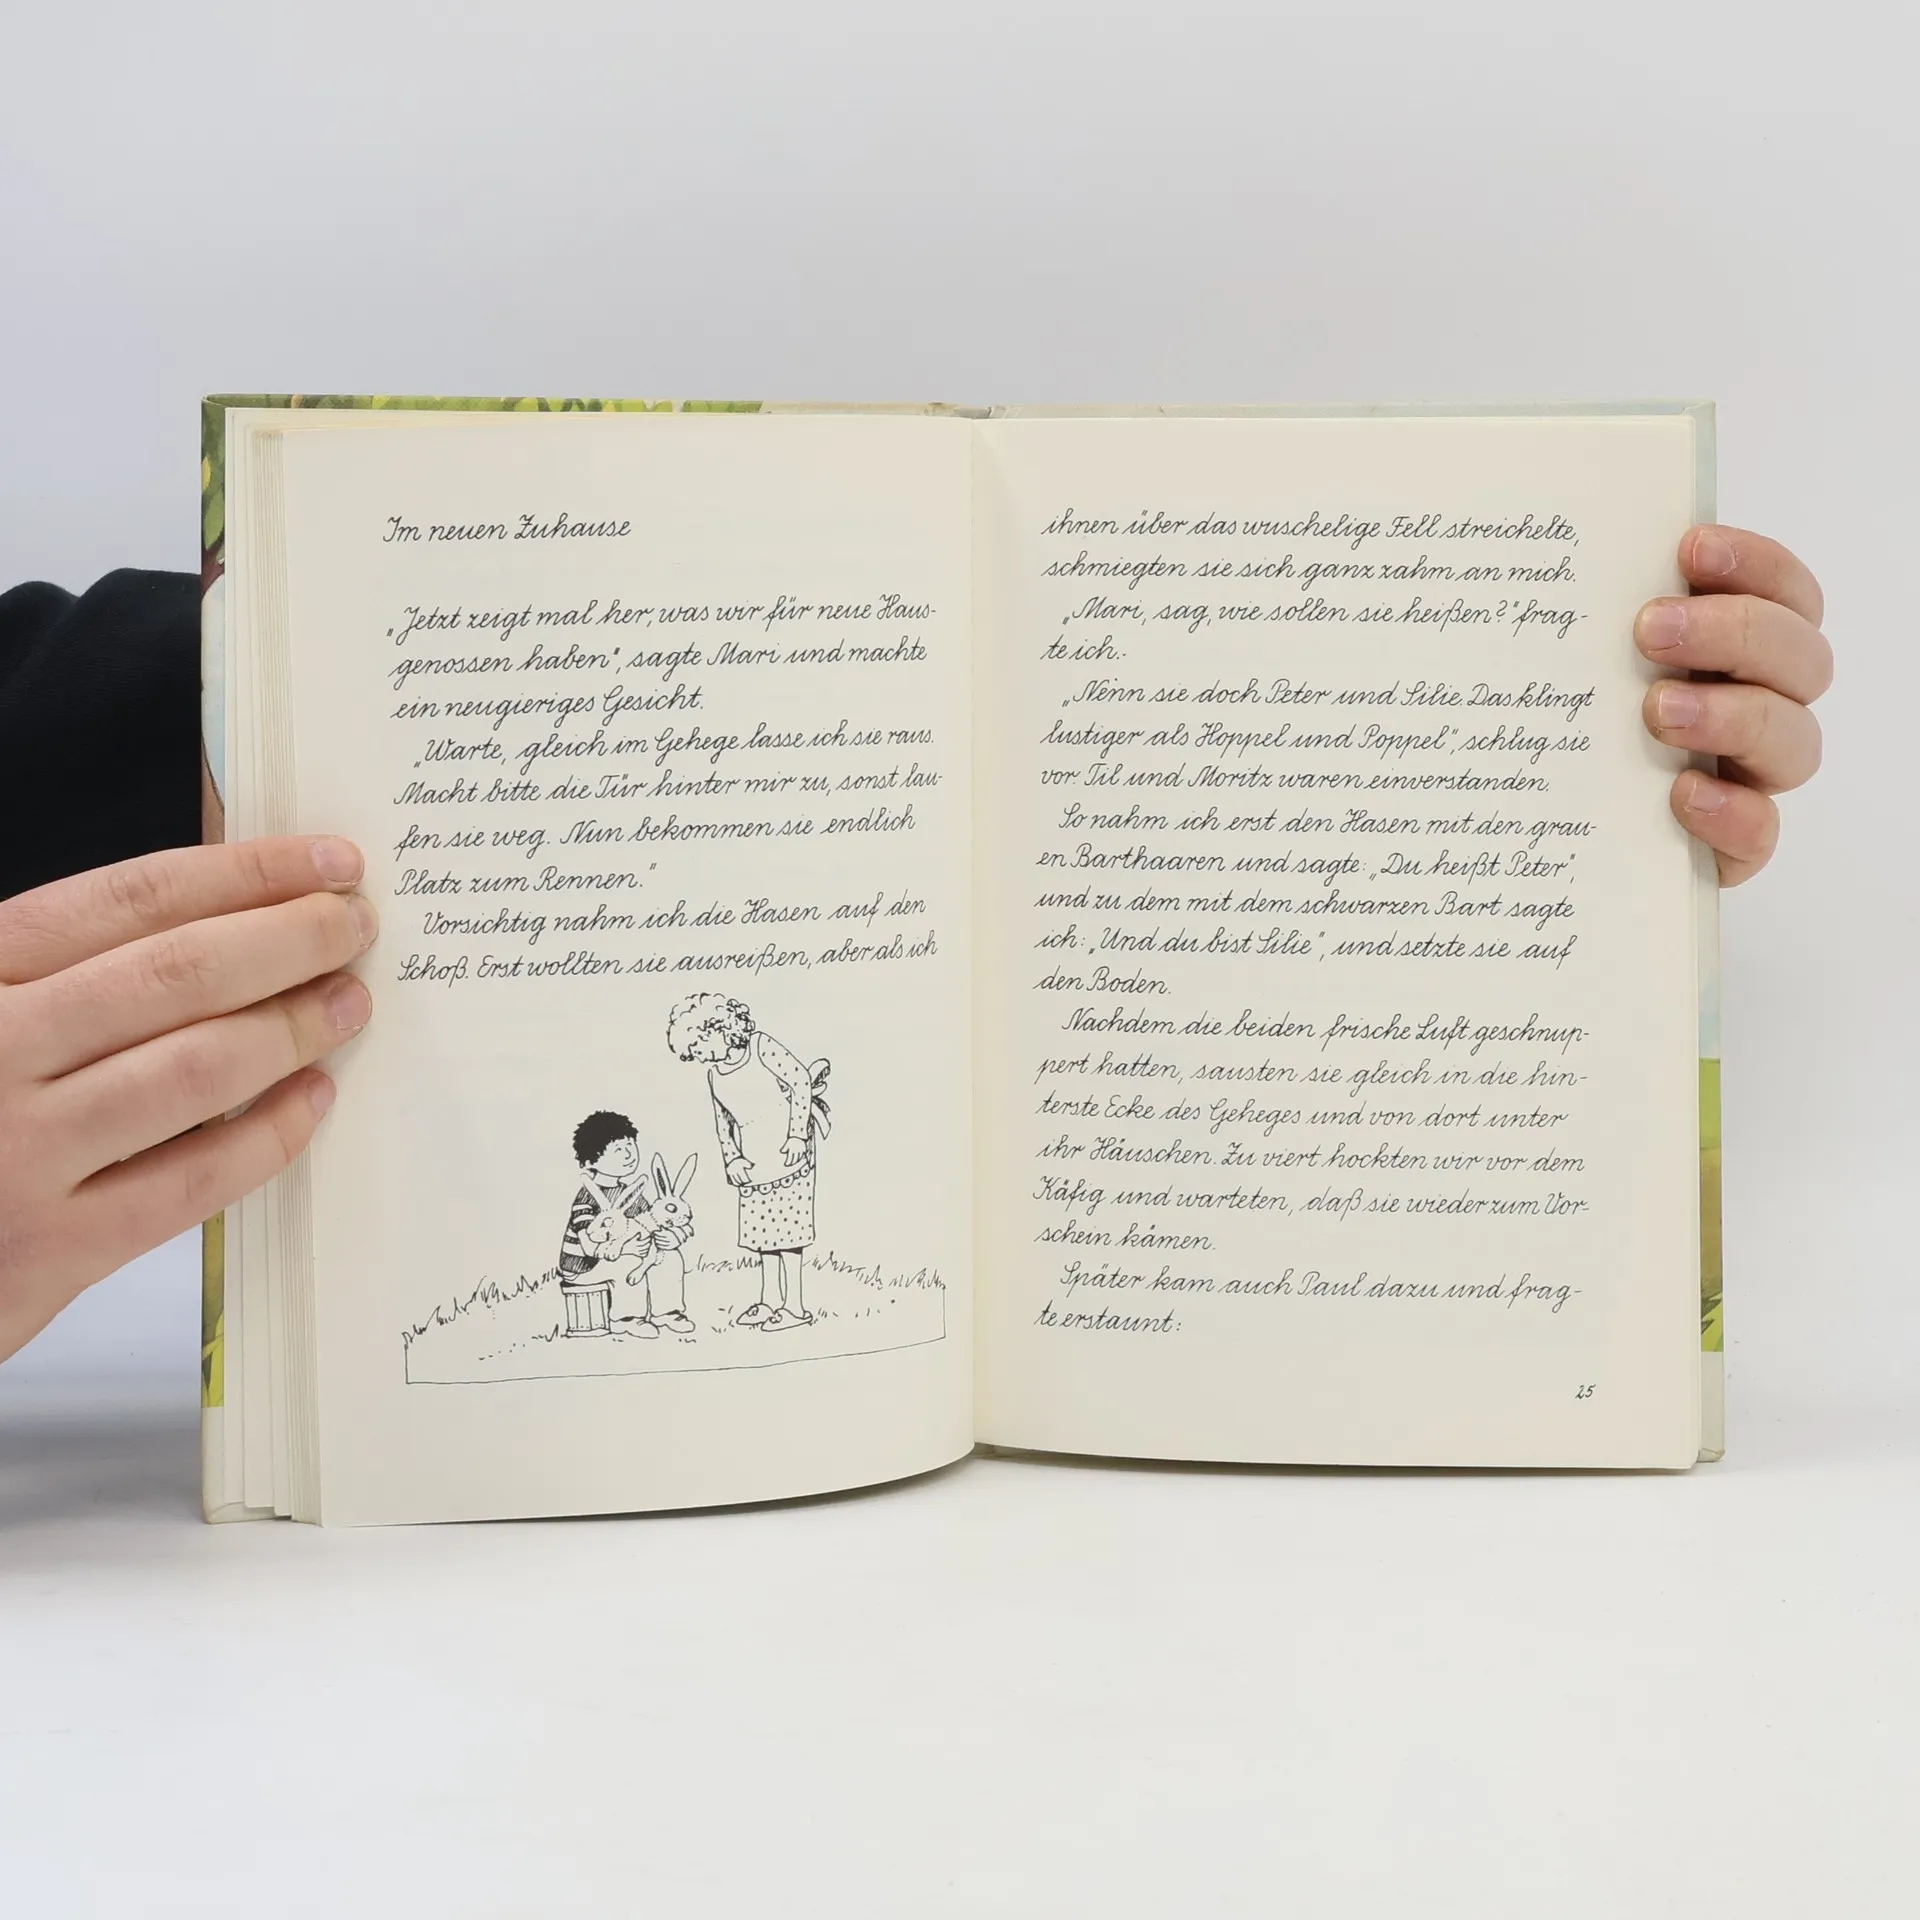 Im neuen Zuhause
„Jetzt zeigt mal her, was wir für neue Haus-
genossen haben“, sagte Mari und machte
ein neugieriges Gesicht.
„Warte, gleich im Gehege lasse ich sie raus.
Macht bitte die Tür hinter mir zu, sonst lau-
fen sie weg. Nun bekommen sie endlich
Platz zum Rennen.“
Vorsichtig nahm ich die Hasen auf den
Schoß. Erst wollten sie ausreißen, aber als ich
ihnen über das wuschelige Fell streichelte,
schmiegten sie sich ganz zahm an mich.
„Mari, sag, wie sollen sie heißen?“ frag-
te ich.
„Nenn sie doch Peter und Silie. Das klingt
lustiger als Hoppel und Poppel“, schlug sie
vor. Til und Moritz waren einverstanden.
So nahm ich erst den Hasen mit den grau-
en Barthaaren und sagte: „Du heißt Peter“,
und zu dem mit dem schwarzen Bart sagte
ich: „Und du bist Silie“, und setzte sie auf
den Boden.
Nachdem die beiden frische Luft geschnup-
pert hatten, sausten sie gleich in die hin-
terste Ecke des Geheges und von dort unter
ihr Häuschen. Zu viert hockten wir vor dem
Käfig und warteten, daß sie wieder zum Vor-
schein kämen.
Später kam auch Paul dazu und frag-
te erstaunt:
25